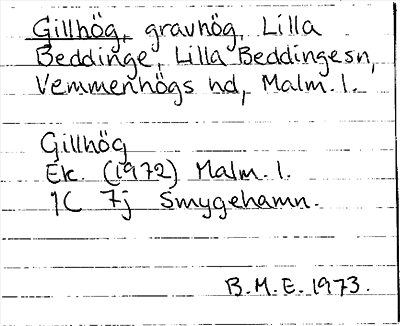 Gillhög, gravhög, Lilla
Beddinge, Lilla Beddingesn,
Vemmenhögs hd, Malm. l.
Gillhög
Ek. (1972) Malm. l.
1C 7j Smygehamn.
B.M.E. 1973.